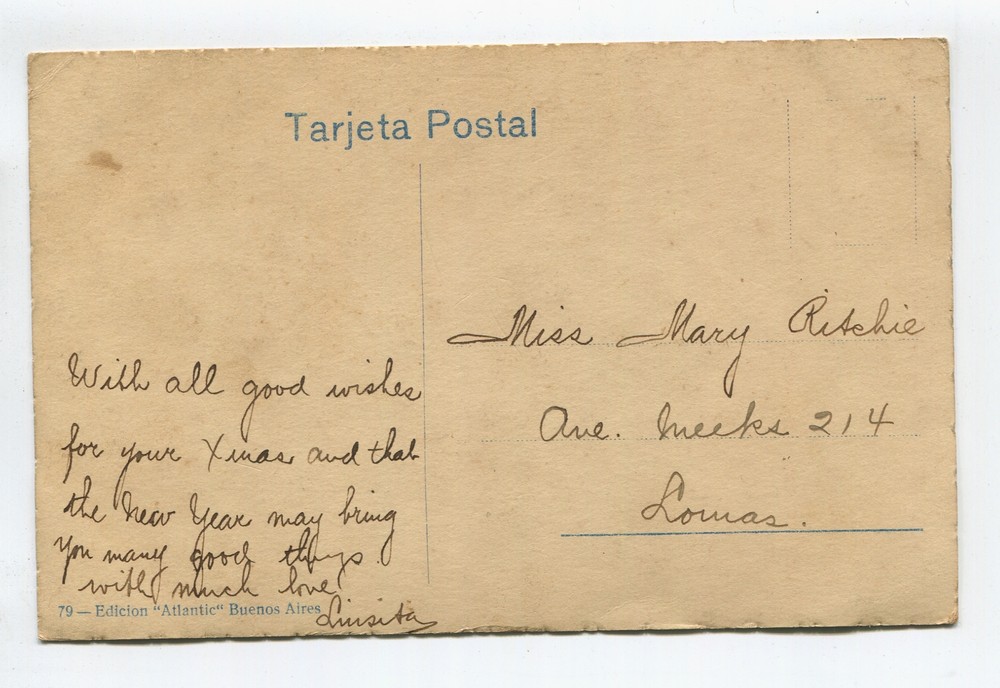 Tarjeta Postal
With all good wishes
for your Xmas and that
the New Year may bring
you many good things
with much love
Luisita
79 — Edicion "Atlantic" Buenos Aires
Miss Mary Ritchie
Ave. Meeks 214
Lomas.